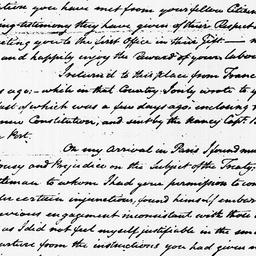 ction you have met from your fellow Citizen
ing testimony they have given of their Respect
ating you to the first Office in their Gift —
and happily enjoy the Reward of your labou
I return'd to this place from France
s ago: — while in that Country, I only wrote to y
of which was a few days ago; inclosing
nne Constitution, and sent by the Nancy Capt.
Port.
On my arrival in Paris I found mu
ousy and Prejudice on the subject of the Treaty
tleman to whom I had your permission to co
certain injunctions, found himself embar
evious engagement inconsistent with those
as I did not feel myself justifiable in the sm
arture from the instructions you had given